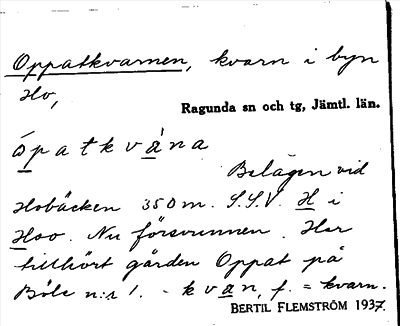 Oppatkvarnen, kvarn i byn
Ho,
Ragunda sn och tg, Jämtl. län.
òpatkvàna
Belägen vid
Hobäcken 350 m. S.S.V. H i
Hoo. Nu försvunnen. Har
tillhört gården Oppat på
Böle n:r 1. - kvan, f. = kvarn.
BERTIL FLEMSTRÖM 1937.